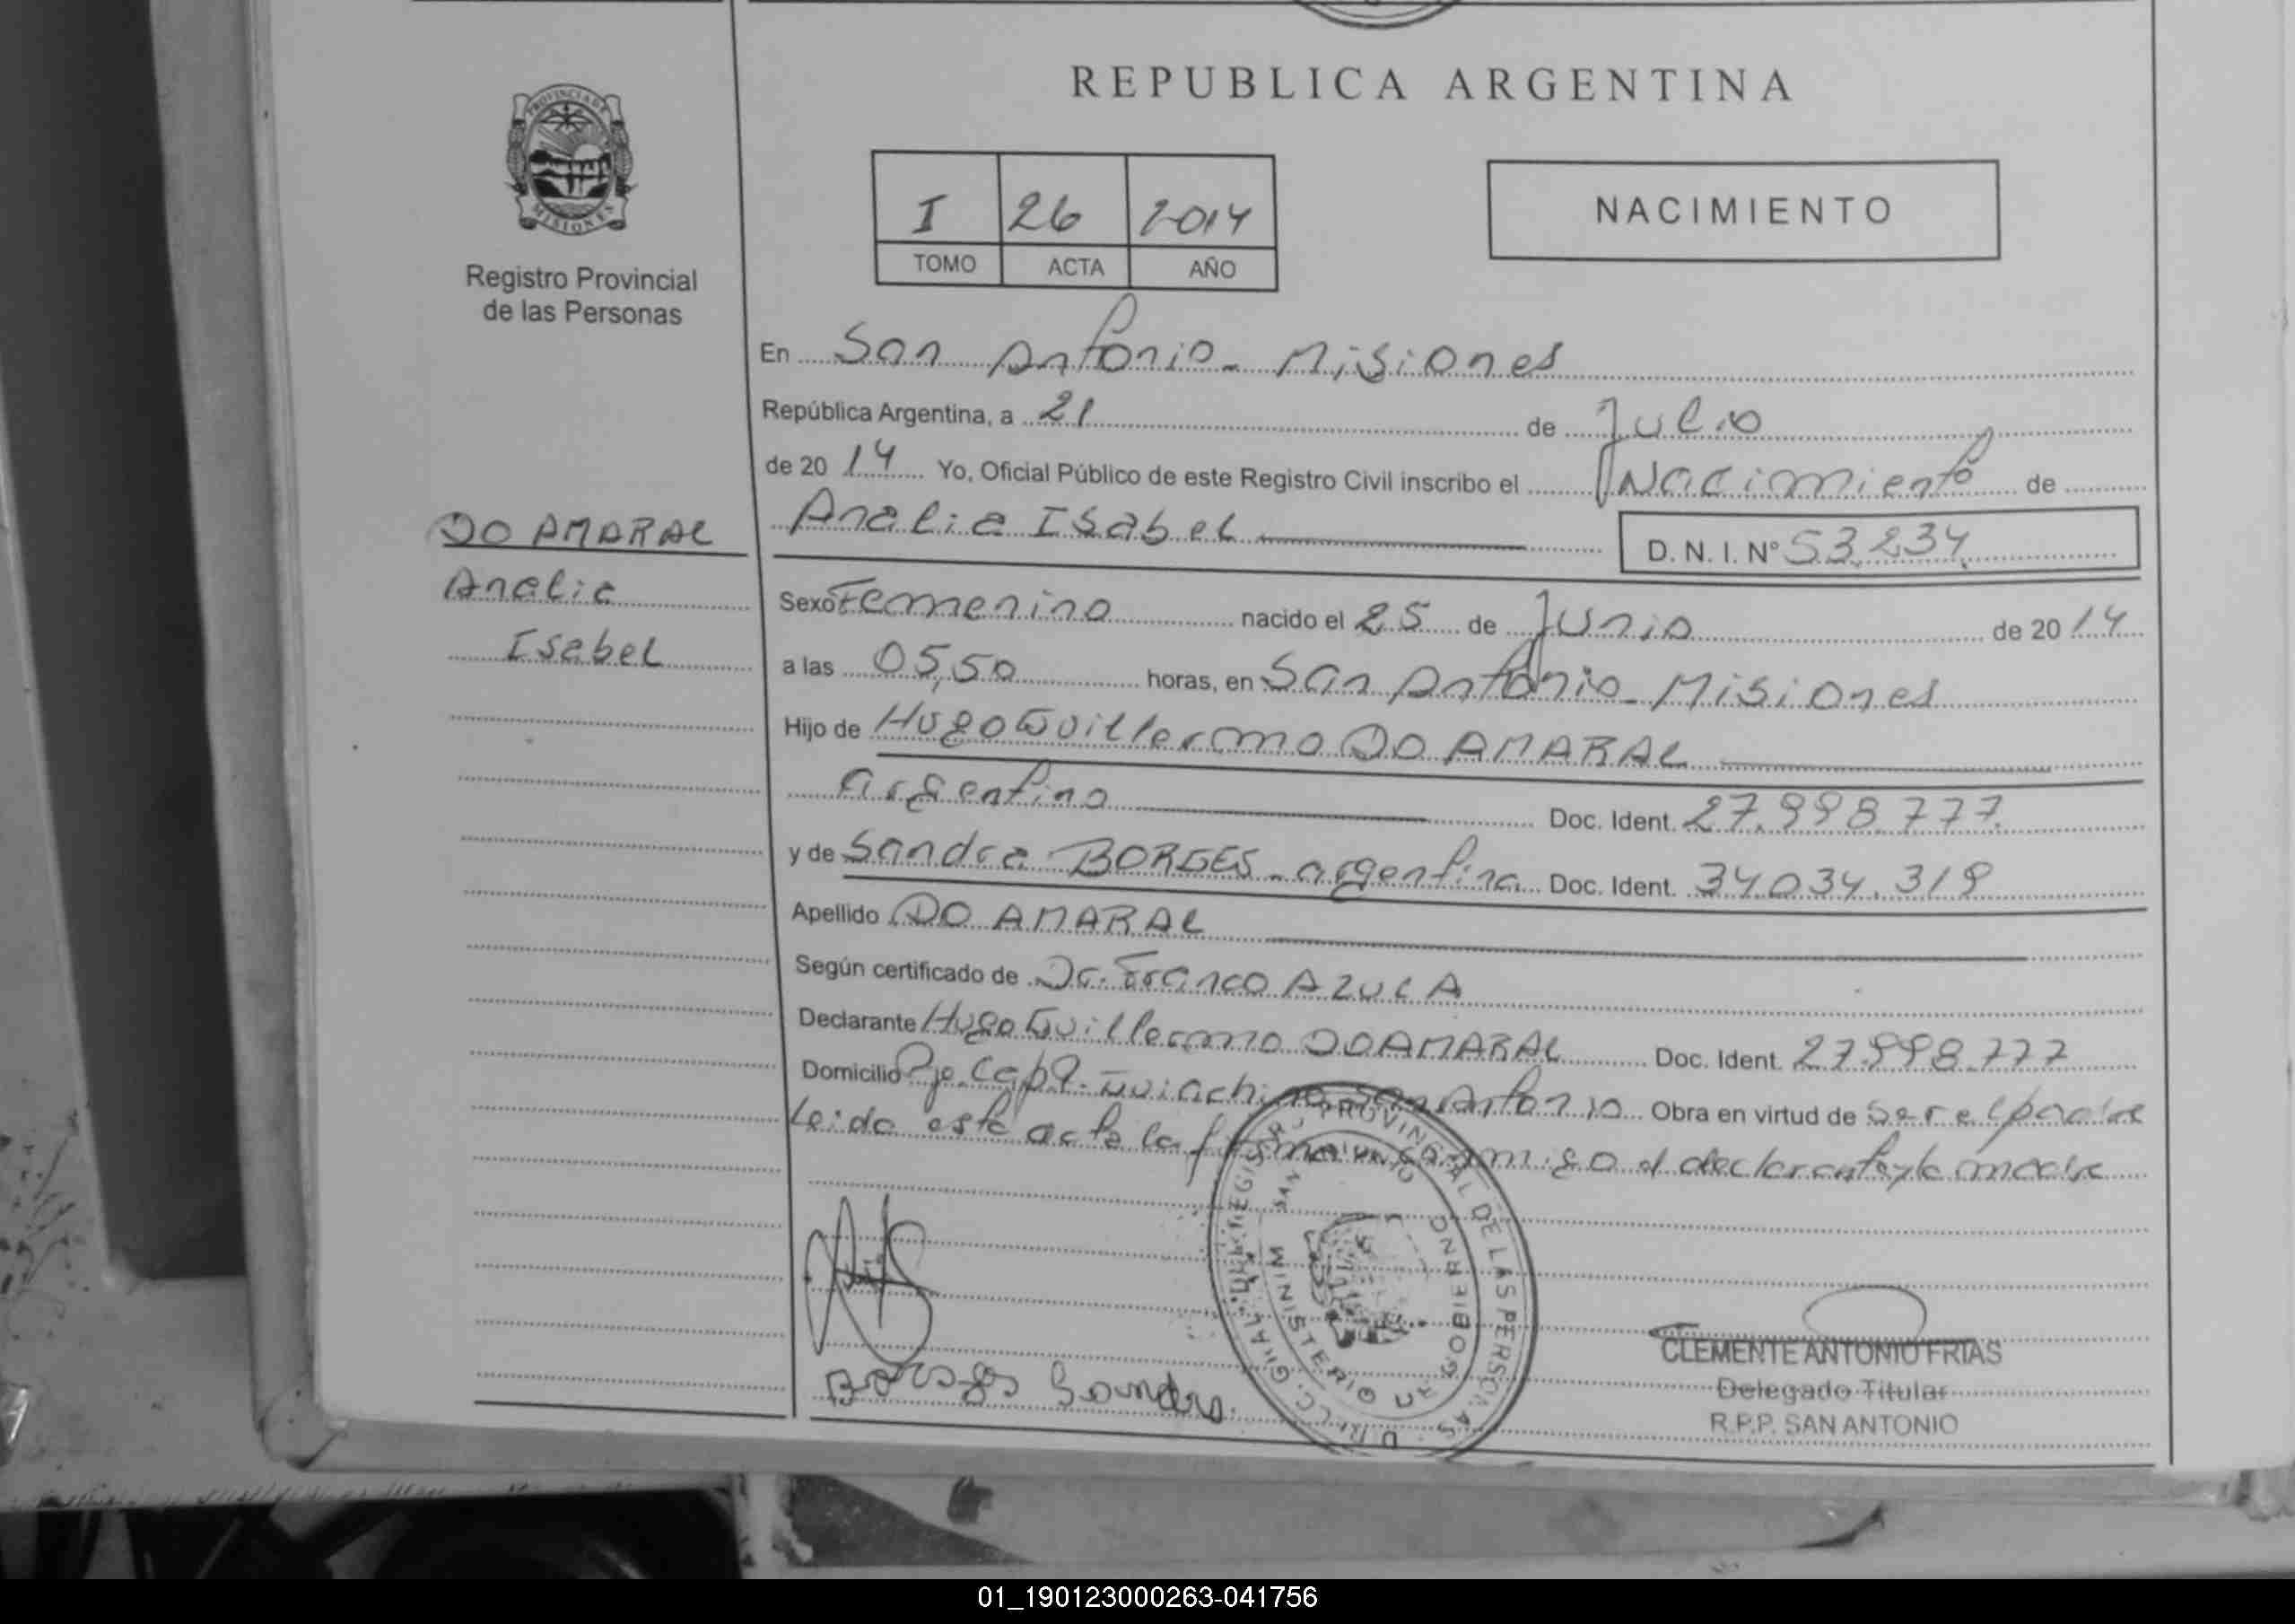 REPUBLICA ARGENTINA
PROVINCIA DE
MISIONES
Registro Provincial
de las Personas
I 26 2014
TOMO ACTA AÑO
NACIMIENTO
En San Antonio - Misiones
República Argentina, a 21 de Julio
de 20 14 Yo, Oficial Público de este Registro Civil inscribo el Nacimiento de
Analia Isabel D. N. I. Nº 53.234.
DO AMARAL
Analia
Isabel
Sexo Femenino nacido el 25 de Junio de 20 14
a las 05,50 horas, en San Antonio - Misiones
Hijo de Hugo Guillermo DO AMARAL
argentino Doc. Ident. 27.998.777.
y de Sandra BORGES - argentina Doc. Ident. 34.034.319
Apellido DO AMARAL
Según certificado de Dr. Franco AZULA
Declarante Hugo Guillermo DO AMARAL Doc. Ident. 27.998.777
Domicilio Pje. Cap. San Antonio Obra en virtud de Ser el padre
Leida esta acta la firma conmigo el declarante y la madre
REGISTRO PROVINCIAL DE LAS PERSONAS
SAN ANTONIO
MINISTERIO DE GOBIERNO
Borges Sandra
CLEMENTE ANTONIO FRIAS
Delegado Titular
R.P.P. SAN ANTONIO
01_190123000263-041756